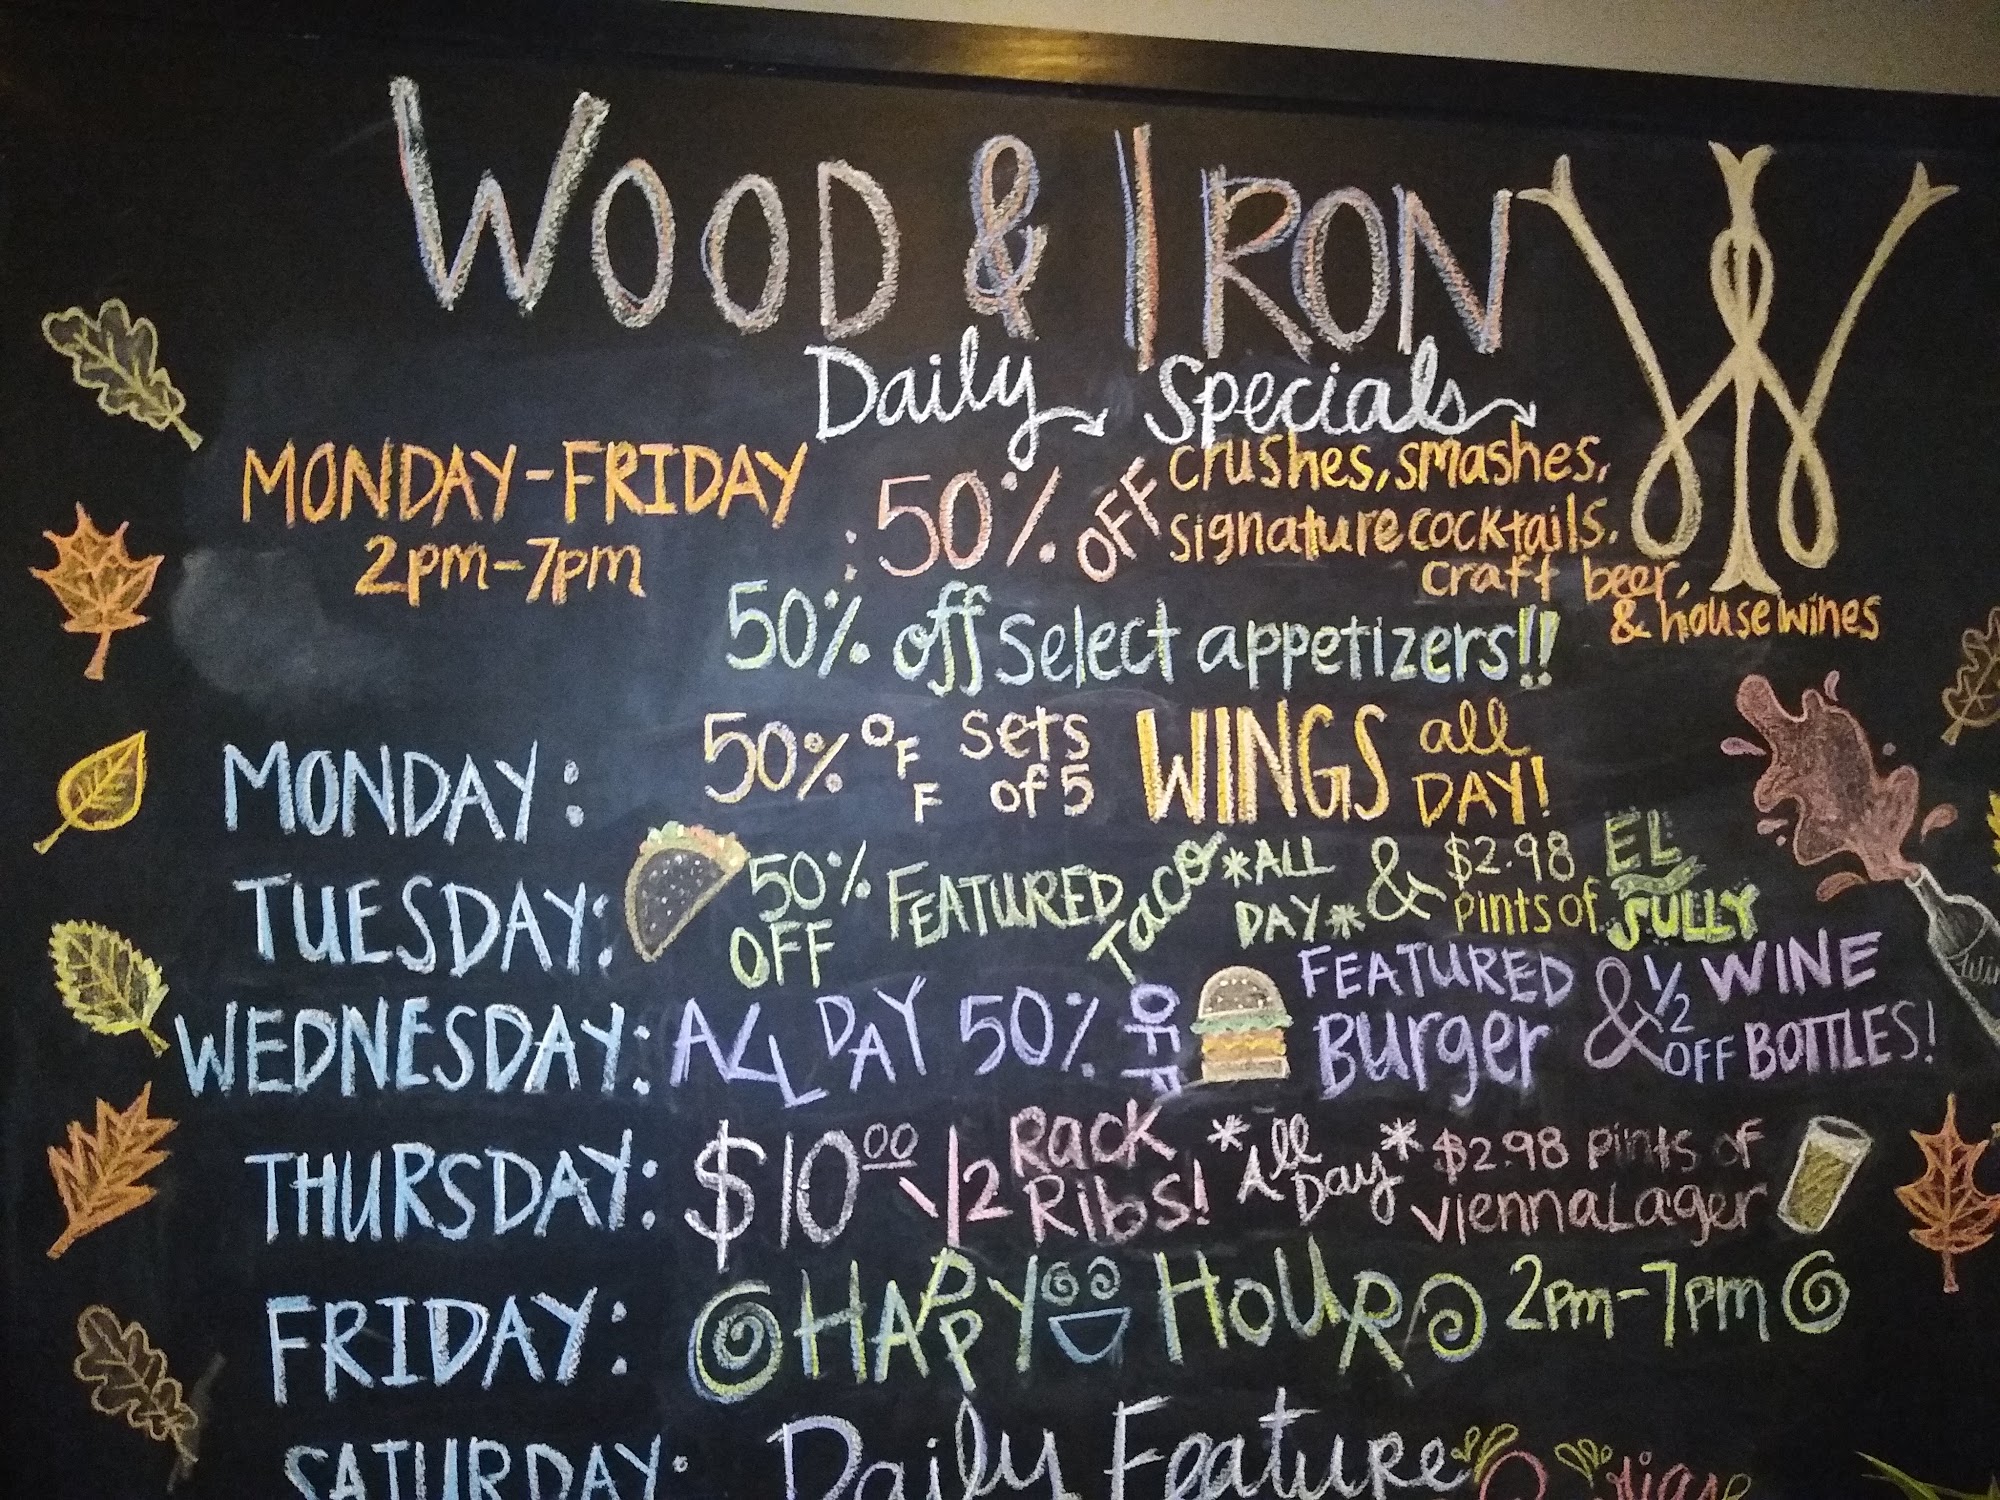 WOOD & IRON
Daily Specials
MONDAY-FRIDAY
2pm-7pm
: 50% OFF crushes, smashes,
signature cocktails.
craft beer,
& house wines
50% off select appetizers!!
MONDAY: 50% OFF sets of 5 WINGS all DAY!
TUESDAY: 50% OFF FEATURED Taco *ALL DAY* & $2.98 pints of EL SULLY
WEDNESDAY: ALL DAY 50% OFF FEATURED Burger & 1/2 OFF WINE BOTTLES!
THURSDAY: $10.00 1/2 Rack Ribs! *All Day* $2.98 pints of Vienna Lager
FRIDAY: HAPPY HOUR 2pm-7pm
SATURDAY: Daily Feature